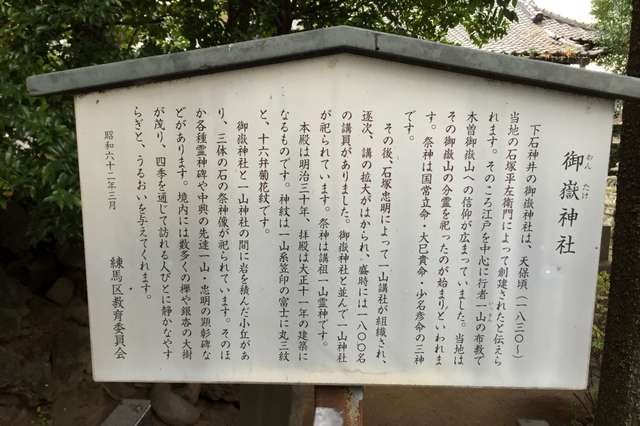 御嶽神社
おん たけ
下石神井の御嶽神社は、天保頃(一八三〇〜)
当地の石塚平左衛門によって創建されたと伝えら
れます。そのころ江戸を中心に行者一山の布教で
木曽御嶽山への信仰が広まっていました。当地は
その御嶽山の分霊を祀ったのが始まりといわれま
す。祭神は国常立命・大巳貴命・少名彦命の三神
です。
その後、石塚忠明によって一山講社が組織され、
逐次、講の拡大がはかられ、盛時には一八〇〇名
の講員がありました。御嶽神社と並んで一山神社
が祀られています。祭神は講祖一山霊神です。
本殿は明治三十年、拝殿は大正十一年の建築に
なるものです。神紋は一山系笠印の富士に丸三紋
と、十六弁菊花紋です。
御嶽神社と一山神社の間に岩を積んだ小丘があ
り、三体の石の祭神像が祀られています。そのほ
か各種霊神碑や中興の先達一山・忠明の顕彰碑な
どがあります。境内には数多くの欅や銀杏の大樹
が茂り、四季を通じて訪れる人びとに静かなやす
らぎと、うるおいを与えてくれます。
昭和六十二年三月
練馬区教育委員会